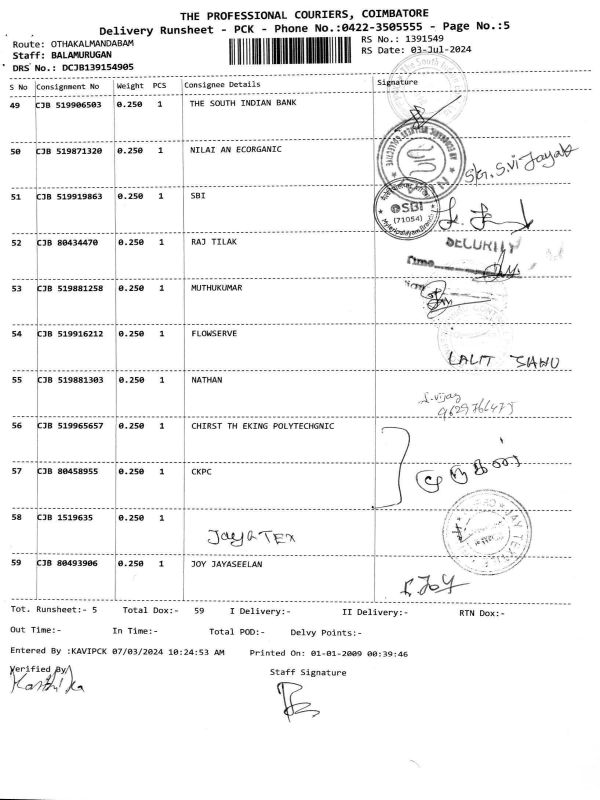 THE PROFESSIONAL COURIERS, COIMBATORE
Delivery Runsheet - PCK - Phone No.:0422-3505555 - Page No.:5
Route: OTHAKALMANDABAM
RS No.: 1391549
Staff: BALAMURUGAN
RS Date: 03-Jul-2024
DRS No.: DCJB139154905
S No Consignment No Weight PCS Consignee Details Signature
49 CJB 519906503 0.250 1 THE SOUTH INDIAN BANK
50 CJB 519871320 0.250 1 NILAI AN ECORGANIC
51 CJB 519919863 0.250 1 SBI
SBI
(71054)
52 CJB 80434470 0.250 1 RAJ TILAK
SECURITY
53 CJB 519881258 0.250 1 MUTHUKUMAR
54 CJB 519916212 0.250 1 FLOWSERVE
LALIT SAHU
55 CJB 519881303 0.250 1 NATHAN
56 CJB 519965657 0.250 1 CHIRST TH EKING POLYTECHGNIC
57 CJB 80458955 0.250 1 CKPC
முருகன்
58 CJB 1519635 0.250 1
Jaya TEX
59 CJB 80493906 0.250 1 JOY JAYASEELAN
JOY
Tot. Runsheet:- 5 Total Dox:- 59 I Delivery:- II Delivery:- RTN Dox:-
Out Time:- In Time:- Total POD:- Delvy Points:-
Entered By :KAVIPCK 07/03/2024 10:24:53 AM Printed On: 01-01-2009 00:39:46
Verified By
Staff Signature
Karthika